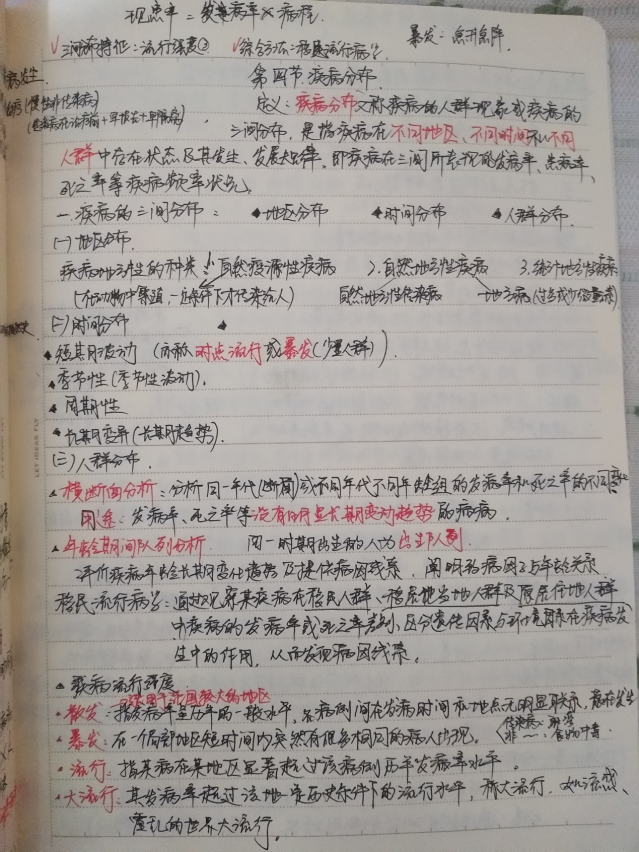 现患率 = 发病率 × 病程.
暴发：急升急降.
√三间分布特征：流行强度② √综合方法：移民流行病学.
第四节 疾病分布
病发生
定义：疾病分布又称疾病的人群现象或疾病的
三间分布，是指疾病在不同地区、不同时间和不同
人群中存在状态及其发生、发展规律. 即疾病在三间所表现的发病率、患病率、
死亡率等疾病频率状况.
一. 疾病的三间分布： 地区分布 时间分布 人群分布.
(一)地区分布.
疾病地方性的种类：1.自然疫源性疾病 2.自然地方性疾病 3.统计地方性疾病
(在动物中繁殖，一定条件下才传染给人) 自然地方性传染病 地方病(过多或少微量元素)
(二)时间分布
短期波动 (亦称时点流行或暴发(少量人群)).
季节性(季节性波动).
周期性
长期变异(长期趋势).
(三)人群分布.
横断面分析：分析同一年代(断面)或不同年代不同年龄组的发病率和死亡率的不同变化
用途：发病率、死亡率等没有明显长期变动趋势的疾病.
年龄期间队列分析. 同一时期出生的人为出生队列.
评价疾病年龄长期变化趋势及提供病因线索. 阐明病因与年龄关系.
移民流行病学：通过观察某疾病在移民人群、移居地当地人群及原居住地人群
中疾病的发病率或死亡率差别，区分遗传因素与环境因素在疾病发
生中的作用，从而发现病因线索.
疾病流行强度
适用于范围较大的地区
散发：指发病率呈历年的一般水平，各病例间在发病时间和地点无明显联系，散在发生
暴发：在一个局部地区短时间内突然有很多相同的病人出现. 非～：食物中毒
流行：指某病在某地区显著超过该病例历年发病率水平.
大流行：其发病率超过该地一定历史条件下的流行水平，称大流行. 如流感、
霍乱的世界大流行.